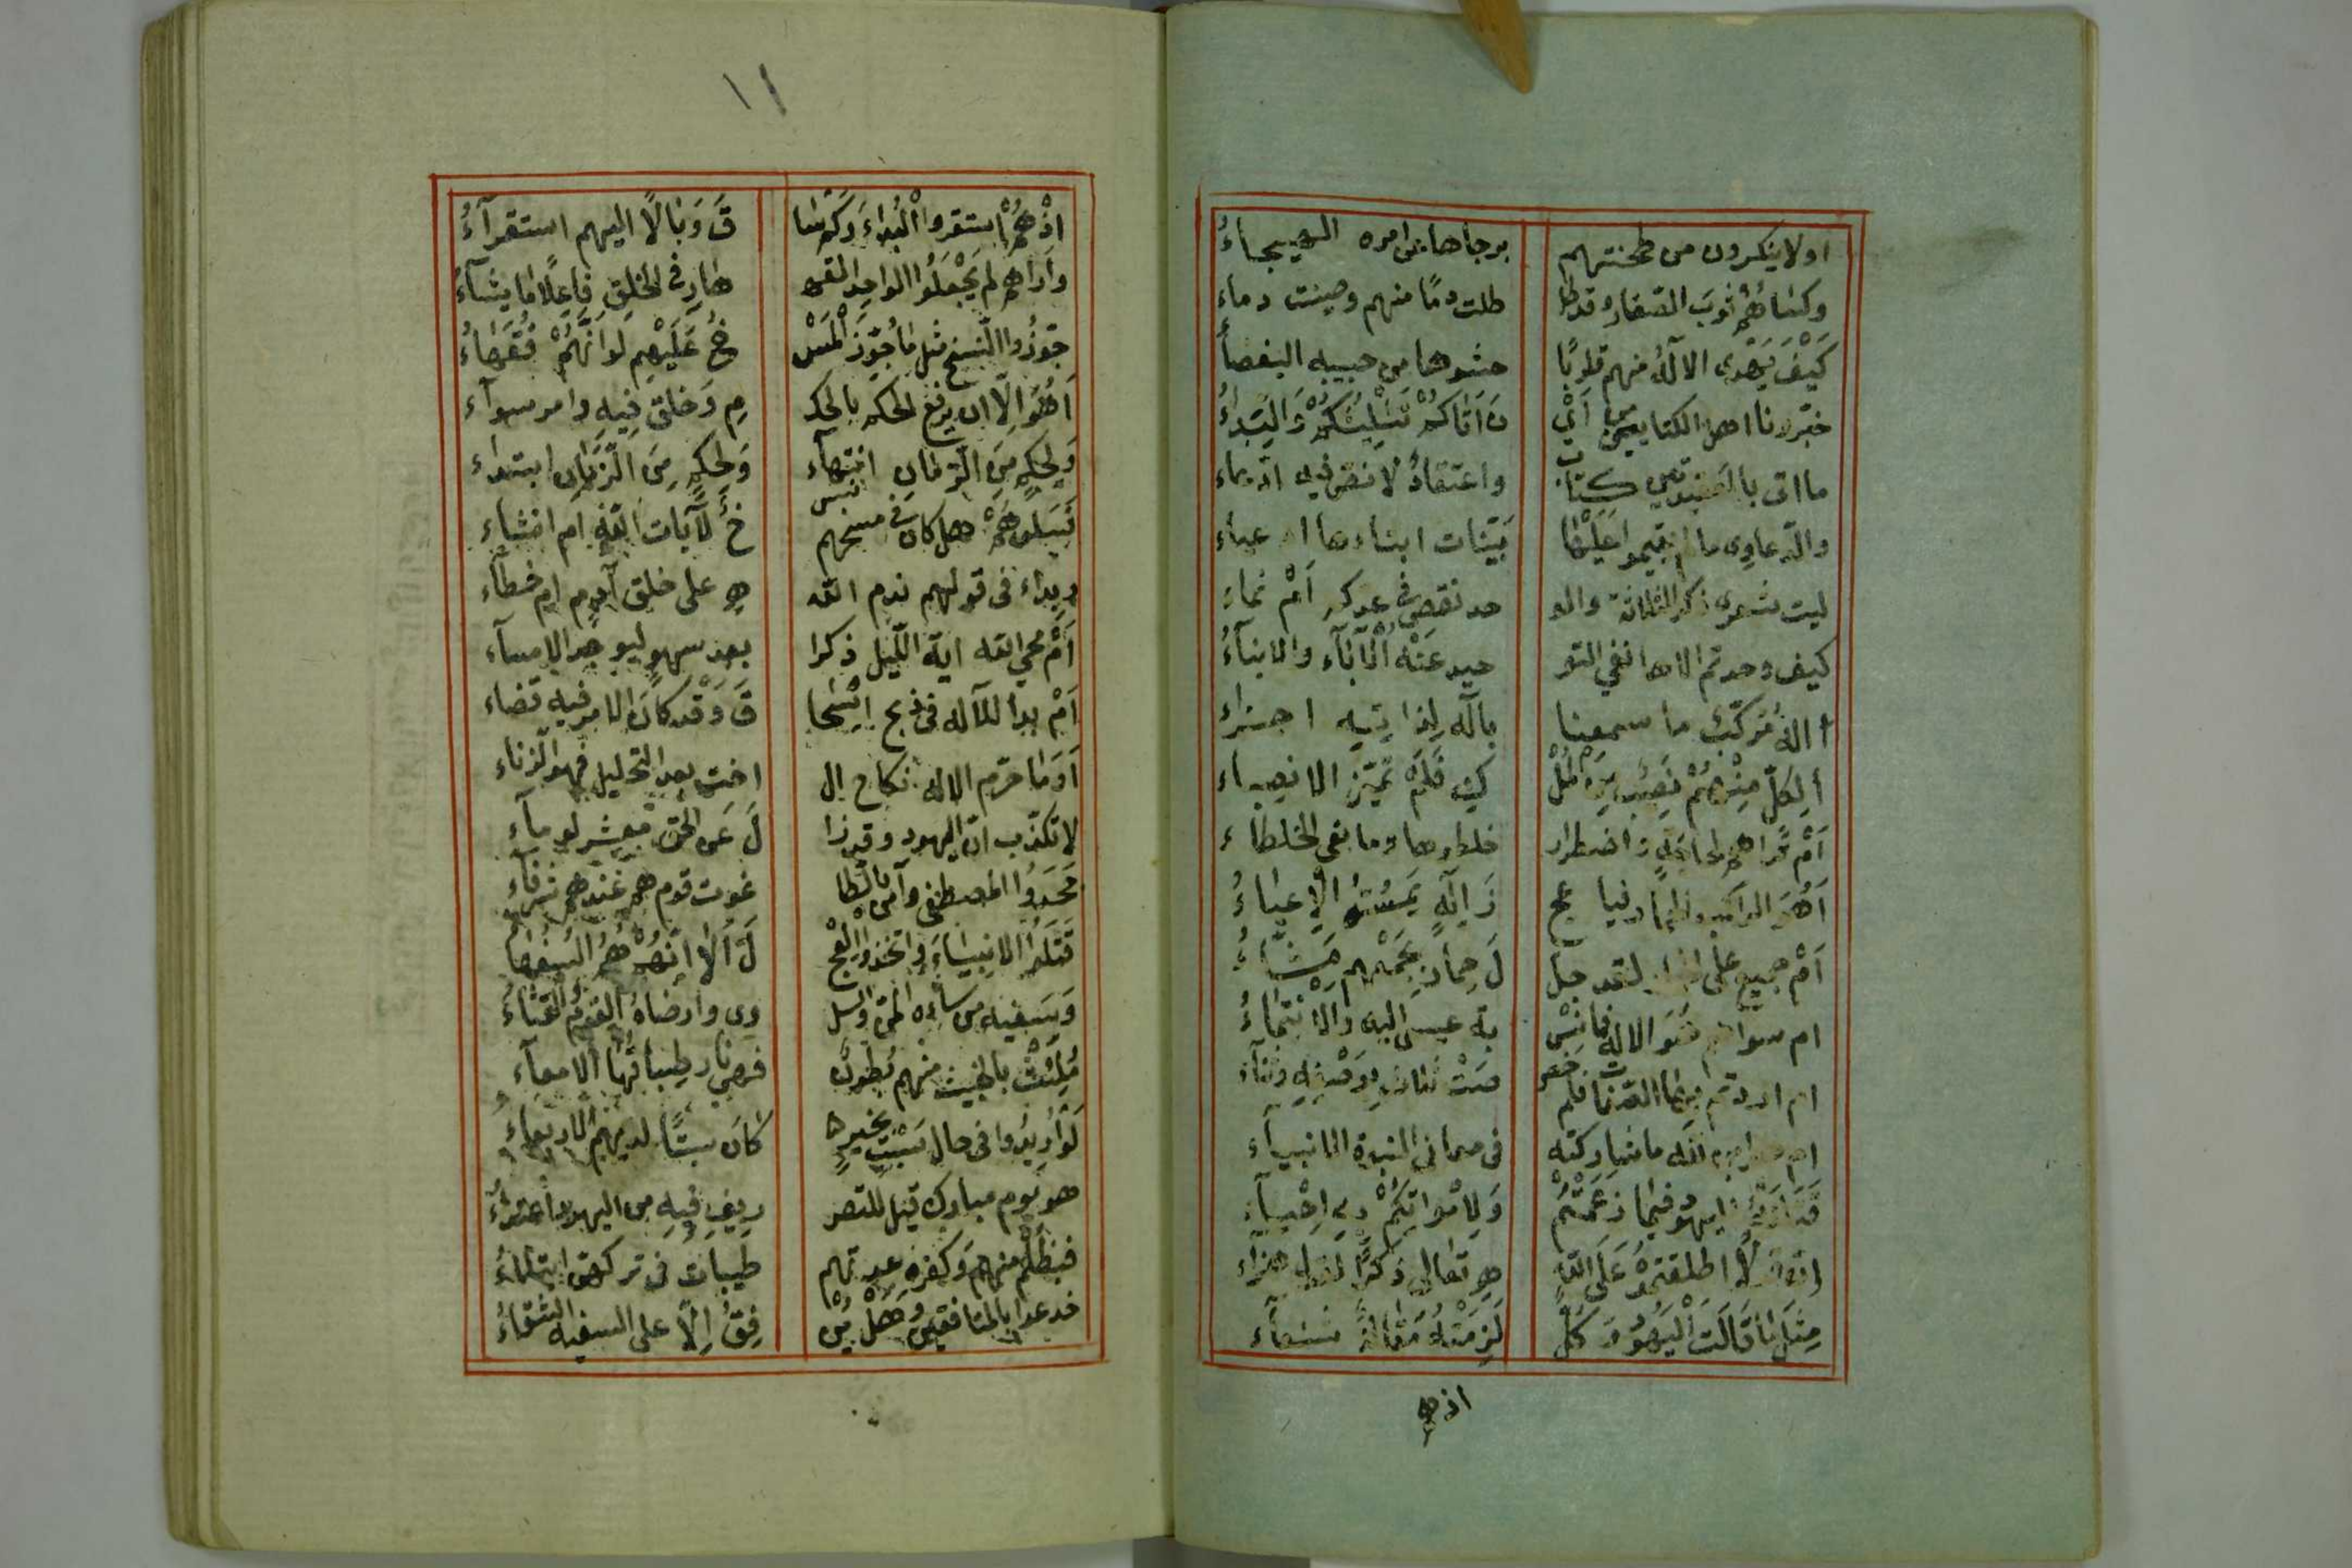 اولا ينكرون من طحنتهم برحاها عن امره الهيجاءُ
وكساهُمْ ثوبَ الصغار وقد طا طلت دمًا منهم وصينت دماء
كَيْفَ يَهْدى الالٓهُ منهم قلوبًا حشوها من حبيبه البغضاءُ
خبّرونا اهل الكتابين من اَيْ نَ اَتَاكُمْ تَثْلِيْثُكُمْ وَالبَدَاءُ
ما اتى بالعقيدتين كتاب واعتقادٌ لا نصّ فيه ادّعاء
والدّعاوى ما لم تقيموا عَلَيْها بَيّنات ابناءها ادعياء
ليت شعرى ذكر الثلاثة والو حد نقص فى عدكم اَمْ نماء
كيف وحدتم الاها نفى التو حيد عَنْهُ الْآبَاء والابناءُ
أ الهٌ مُركّبٌ ما سمعنا بالٓه لذاتِهِ اجزاء
أ لِكلّ مِنْهُمْ نَصِيْب مِنَ الْمُلْ كِ فَلَمْ تميّز الانصباء
اَمْ تراهم لحاجَةٍ واضطرار خلطوها وما بغى الخلطاء
اَهُوَ الراكب الحمار فيا عج زَ الهٍ يَمَسُّهُ الْاِعياءُ
اَمْ جميع على الحمار لقد جلّ لَ حِمَارٌ بجَمْعِهِم مَشّاءُ
ام سواهم هُوَ الاله فما نسْ بة عيسى اليه والانتماءُ
ام اردتم بها الصّفات فلم خص صَتْ ثلاث بِوَصْفِهِ وثناء
ام هو ابن لله ما شاركته فى معانى البنوة الانبياء
قَتَلَتْهُ اليهود فيما زَعَمْتُمْ وَلِاَمْواتِكُمْ بِهِ اِحْيَاء
اِنّ قولًا اطلقتموْهُ عَلَى اللّهِ هِ تعالى ذكرًا لقول هراء
مثلَ مَا قَالَت اليَهُوْدُ وكلٌّ لَزِمَتْهُ مَقَالةٌ شنعاء
اذ هم
١١
اِذْ هُمُ اسْتقروا الْبَداءَ وَكَمْ سَا قَ وَبَالًا اليهم استقرآءُ
واَراهم لم يَجْعَلُوا الواحِد القه هارَ فى الخلقِ فَاعِلًا ما يشآءُ
جَوّزُوا النسخ مثل ما جُوّزَ المَسْ خُ عَلَيْهِم لَوْ اَنّهُمْ فُقَهَاءُ
اَهُوَ الّا ان يرفع الحكم بالحك مِ وَخلق فِيه وامر سوآء
وَلحكمٍ مِنَ الزمانِ انتهاء وَلحكمٍ مِنَ الزّمَانِ ابتداء
فَسَلوهُمْ هل كان فى مسخهم نس خٌ لآيات اللّهِ ام انشاء
وبداء فى قولهم ندم الله ه على خلق آدم ام خطآء
اَمْ محى الله اية اللّيل ذكرا بعد سهوٍ ليوجد الامسآء
اَمْ بدا للالٓه فى ذبح اِسْحَا قَ وَقد كَانَ الامر فيه قضاء
اَوَمَا حرّم الاله نكاح ال اخت بعد التحليل فهو الزناء
لا تكذّب انّ اليهود وقد زا لَ عَن الحق معشر لومآء
جَحَدُوا المصطفى وآمن بالطّا غوت قوم هم عندهم شرفآءُ
قَتَلُوا الانبياءَ واتخذوا العِجْ لَ اَلَا اِنّهُمْ هُمُ السُفَهَا
وَسَفيه من ساءه المنّ والسل وى وارضاهُ الفُومُ والقثاءُ
مُلِئَتْ بالخبيث منهم بُطونٌ فهى نار طِبَاقُهَا الامعآءُ
لَوْ اُرِيْدُوا فى حال سَبْتٍ بخيرها كَانَ سبتًا لديهم الاربعاءُ
هو يوم مبارك قيل للتصر ريفِ فيهِ من اليهود اعتداءُ
فبظُلْم منهم وَكفرٍ عدتهم طيبات فى تركهن ابتلاءُ
خدعوا بالمنافقين وَهَلْ يُنْ فِقُ اِلّا على السفيه الشقاءُ